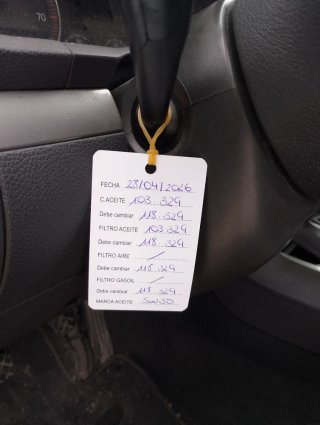 70
FECHA 28/04/2026
C.ACEITE 103.329
Debe cambiar 118.329
FILTRO ACEITE 103.329
Debe cambiar 118.329
FILTRO AIRE /
Debe cambiar 118.329
FILTRO GASOIL /
Debe cambiar 118.329
MARCA ACEITE 5W30